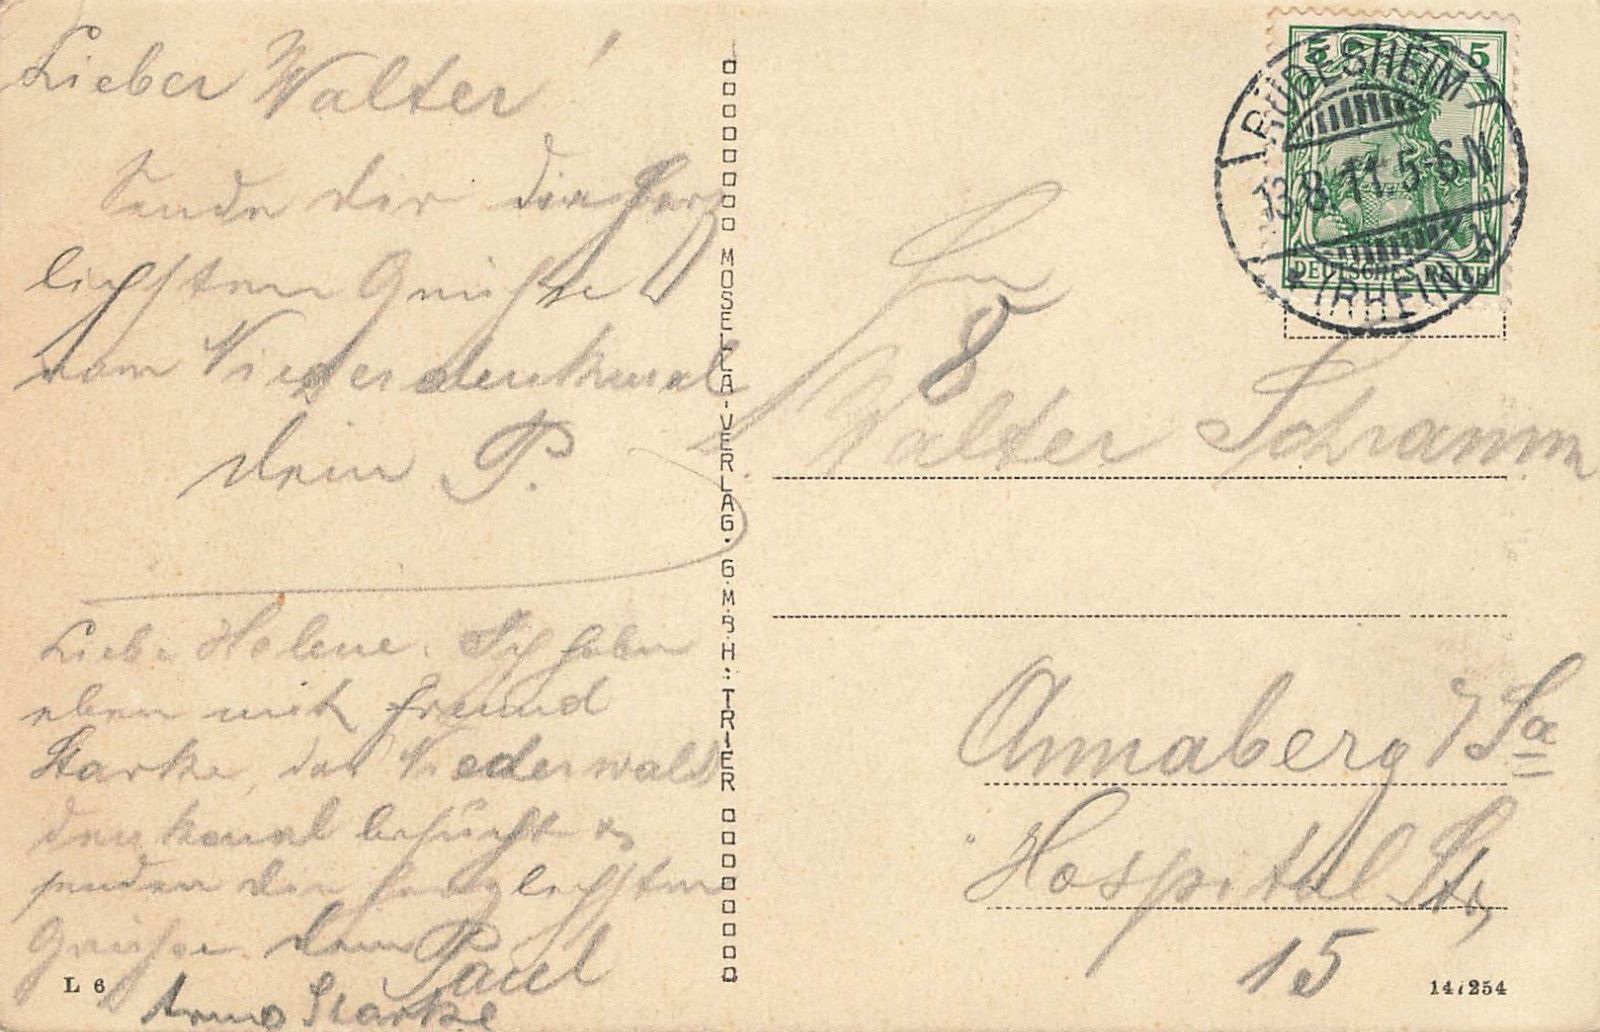 Lieber Walter!
Sende dir die herz
lichsten Grüße
vom Niederdenkmal
dein P.
Liebe Helene. Ich habe
eben mit Freund
Starke, das Niederwald
denkmal besucht &
senden die herzlichsten
Grüße dein Paul
Arno Starke
L 6
MOSELLA-VERLAG·G·M·B·H: TRIER
5 5
DEUTSCHES REICH
RÜDESHEIM
13.8.11.5-6N
*(RHEIN) b
8
Walter Schramm
Annaberg i/Sa
Hospital Str,
15
147254